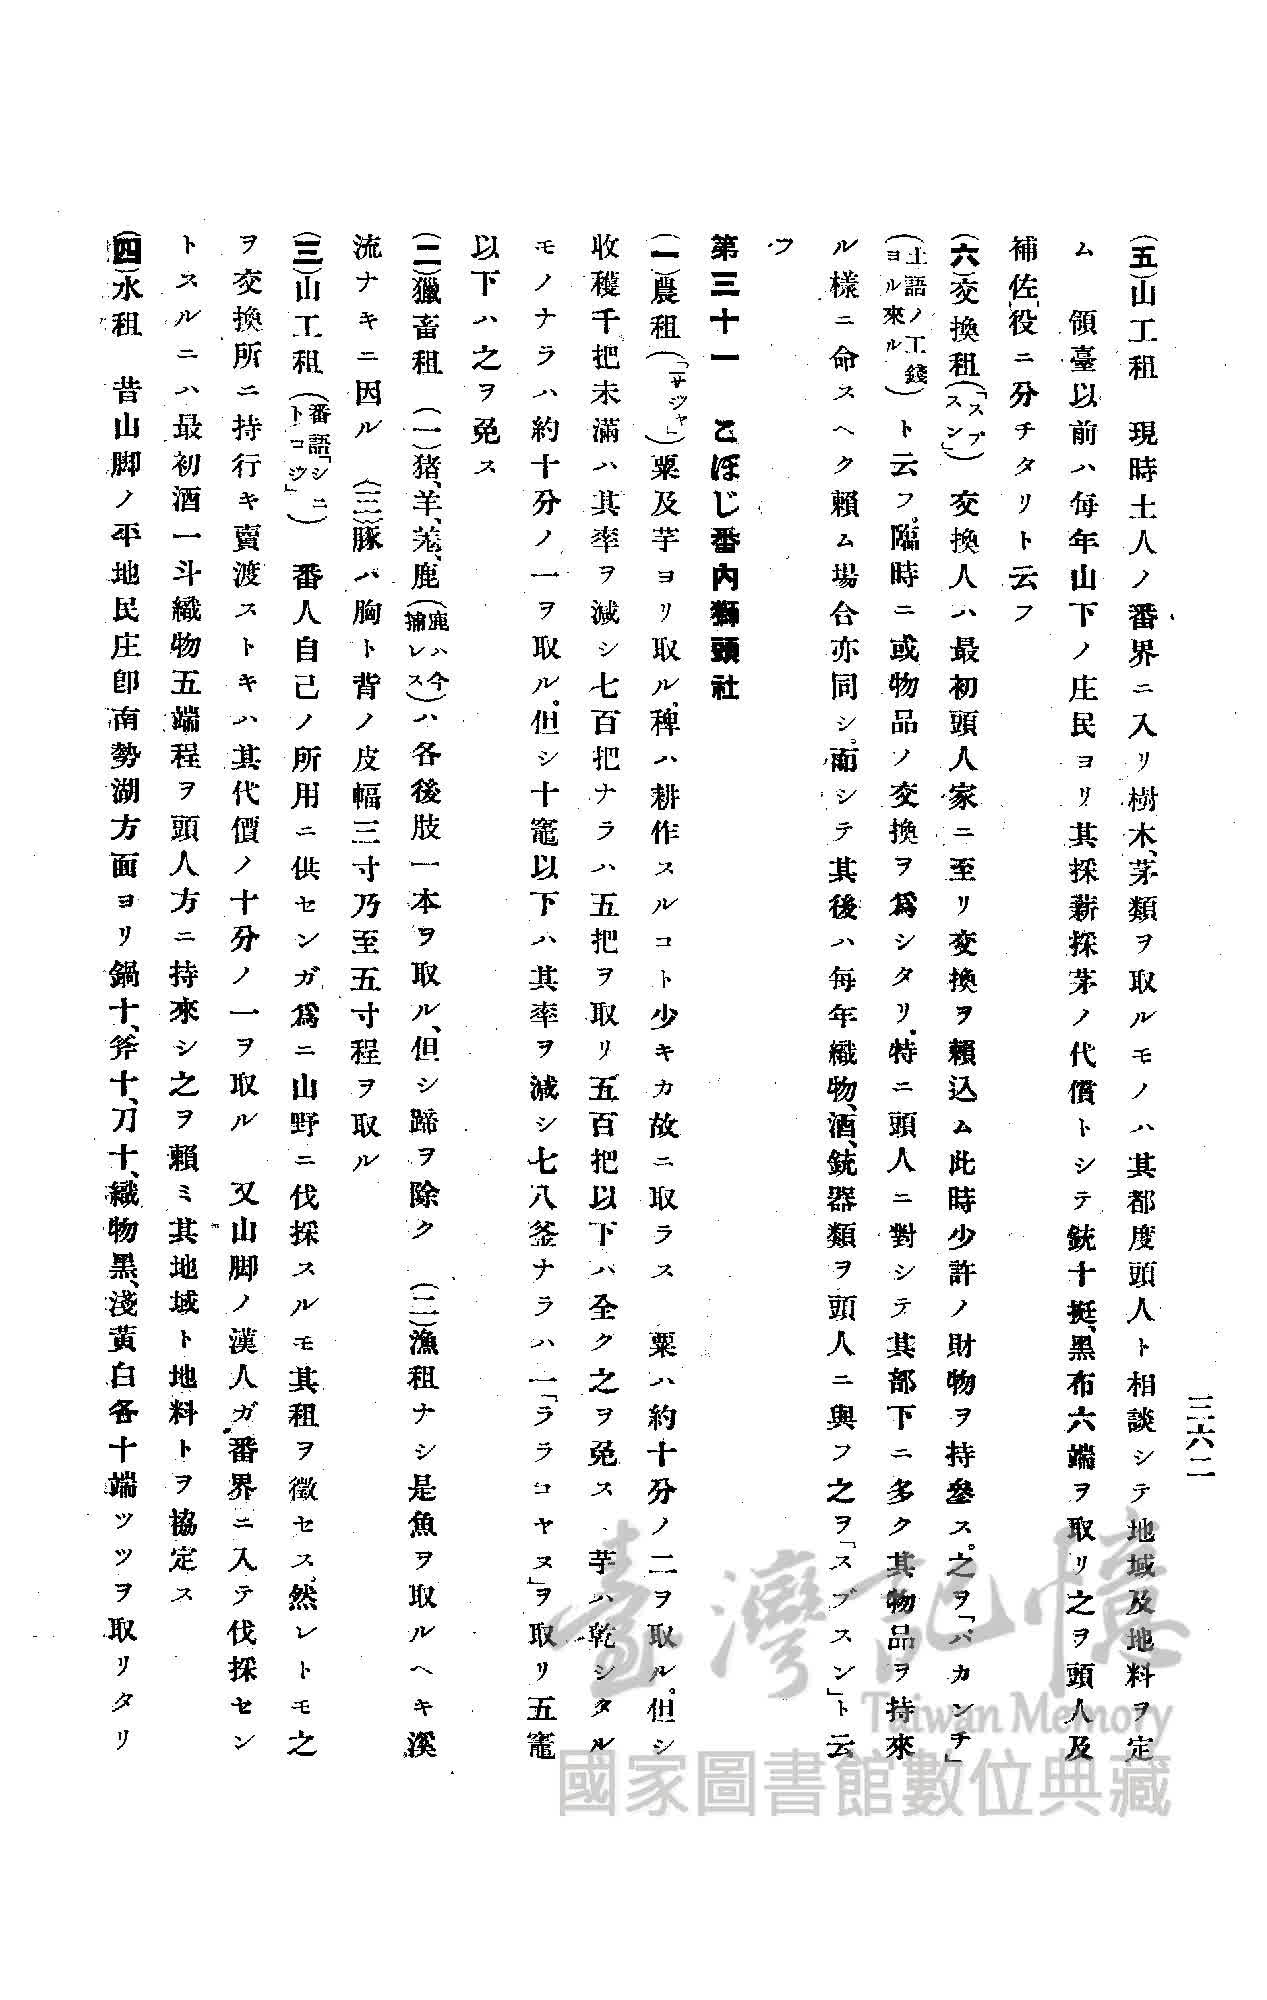 三六二
(五)山工租　現時土人ノ番界ニ入リ樹木、茅類ヲ取ルモノハ其都度頭人ト相談シテ地域及地料ヲ定
ム　領臺以前ハ每年山下ノ庄民ヨリ其採薪採茅ノ代償トシテ銃十挺、黑布六端ヲ取リ之ヲ頭人及
補佐役ニ分チタリト云フ
(六)交換租(「スブスン」)　交換人ハ最初頭人家ニ至リ交換ヲ賴込ム此時少許ノ財物ヲ持參ス。之ヲ「パカンチ」
(土語ノ工錢ヨル來ル)ト云フ。臨時ニ或物品ノ交換ヲ爲シタリ、特ニ頭人ニ對シテ其部下ニ多ク其物品ヲ持來
ル樣ニ命スヘク賴ム場合亦同シ。而シテ其後ハ每年織物、酒、銃器類ヲ頭人ニ與フ之ヲ「スブスン」ト云
フ
第三十一　こほじ番內獅頭社
(一)農租(「サジャ」)粟及芋ヨリ取ル、稗ハ耕作スルコト少キカ故ニ取ラス　粟ハ約十分ノ二ヲ取ル。但シ
收穫千把未滿ハ其率ヲ減シ七百把ナラハ五把ヲ取リ五百把以下ハ全ク之ヲ免ス　芋ハ乾シタル
モノナラハ約十分ノ一ヲ取ル。但シ十竈以下ハ其率ヲ減シ七八釜ナラハ一「ララコヤヌ」ヲ取リ五竈
以下ハ之ヲ免ス
(二)獵畜租　(一)猪、羊、羌、鹿(鹿ハ今捕レス)ハ各後肢一本ヲ取ル、但シ蹄ヲ除ク　(二)漁租ナシ是魚ヲ取ルヘキ溪
流ナキニ因ル　(三)豚ハ胸ト背ノ皮幅三寸乃至五寸程ヲ取ル
(三)山工租(番語「シニトコジ」)　番人自己ノ所用ニ供センガ爲ニ山野ニ伐採スルモ其租ヲ徵セス。然レトモ之
ヲ交換所ニ持行キ賣渡ストキハ其代價ノ十分ノ一ヲ取ル　又山脚ノ漢人ガ番界ニ入テ伐採セン
トスルニハ最初酒一斗織物五端程ヲ頭人方ニ持來シ之ヲ賴ミ其地域ト地料トヲ協定ス
(四)水租　昔山脚ノ平地民庄卽南勢湖方面ヨリ鍋十、斧十、刀十、織物黑、淺黃白各十端ツツヲ取リタリ
臺灣記憶
Taiwan Memory
國家圖書館數位典藏